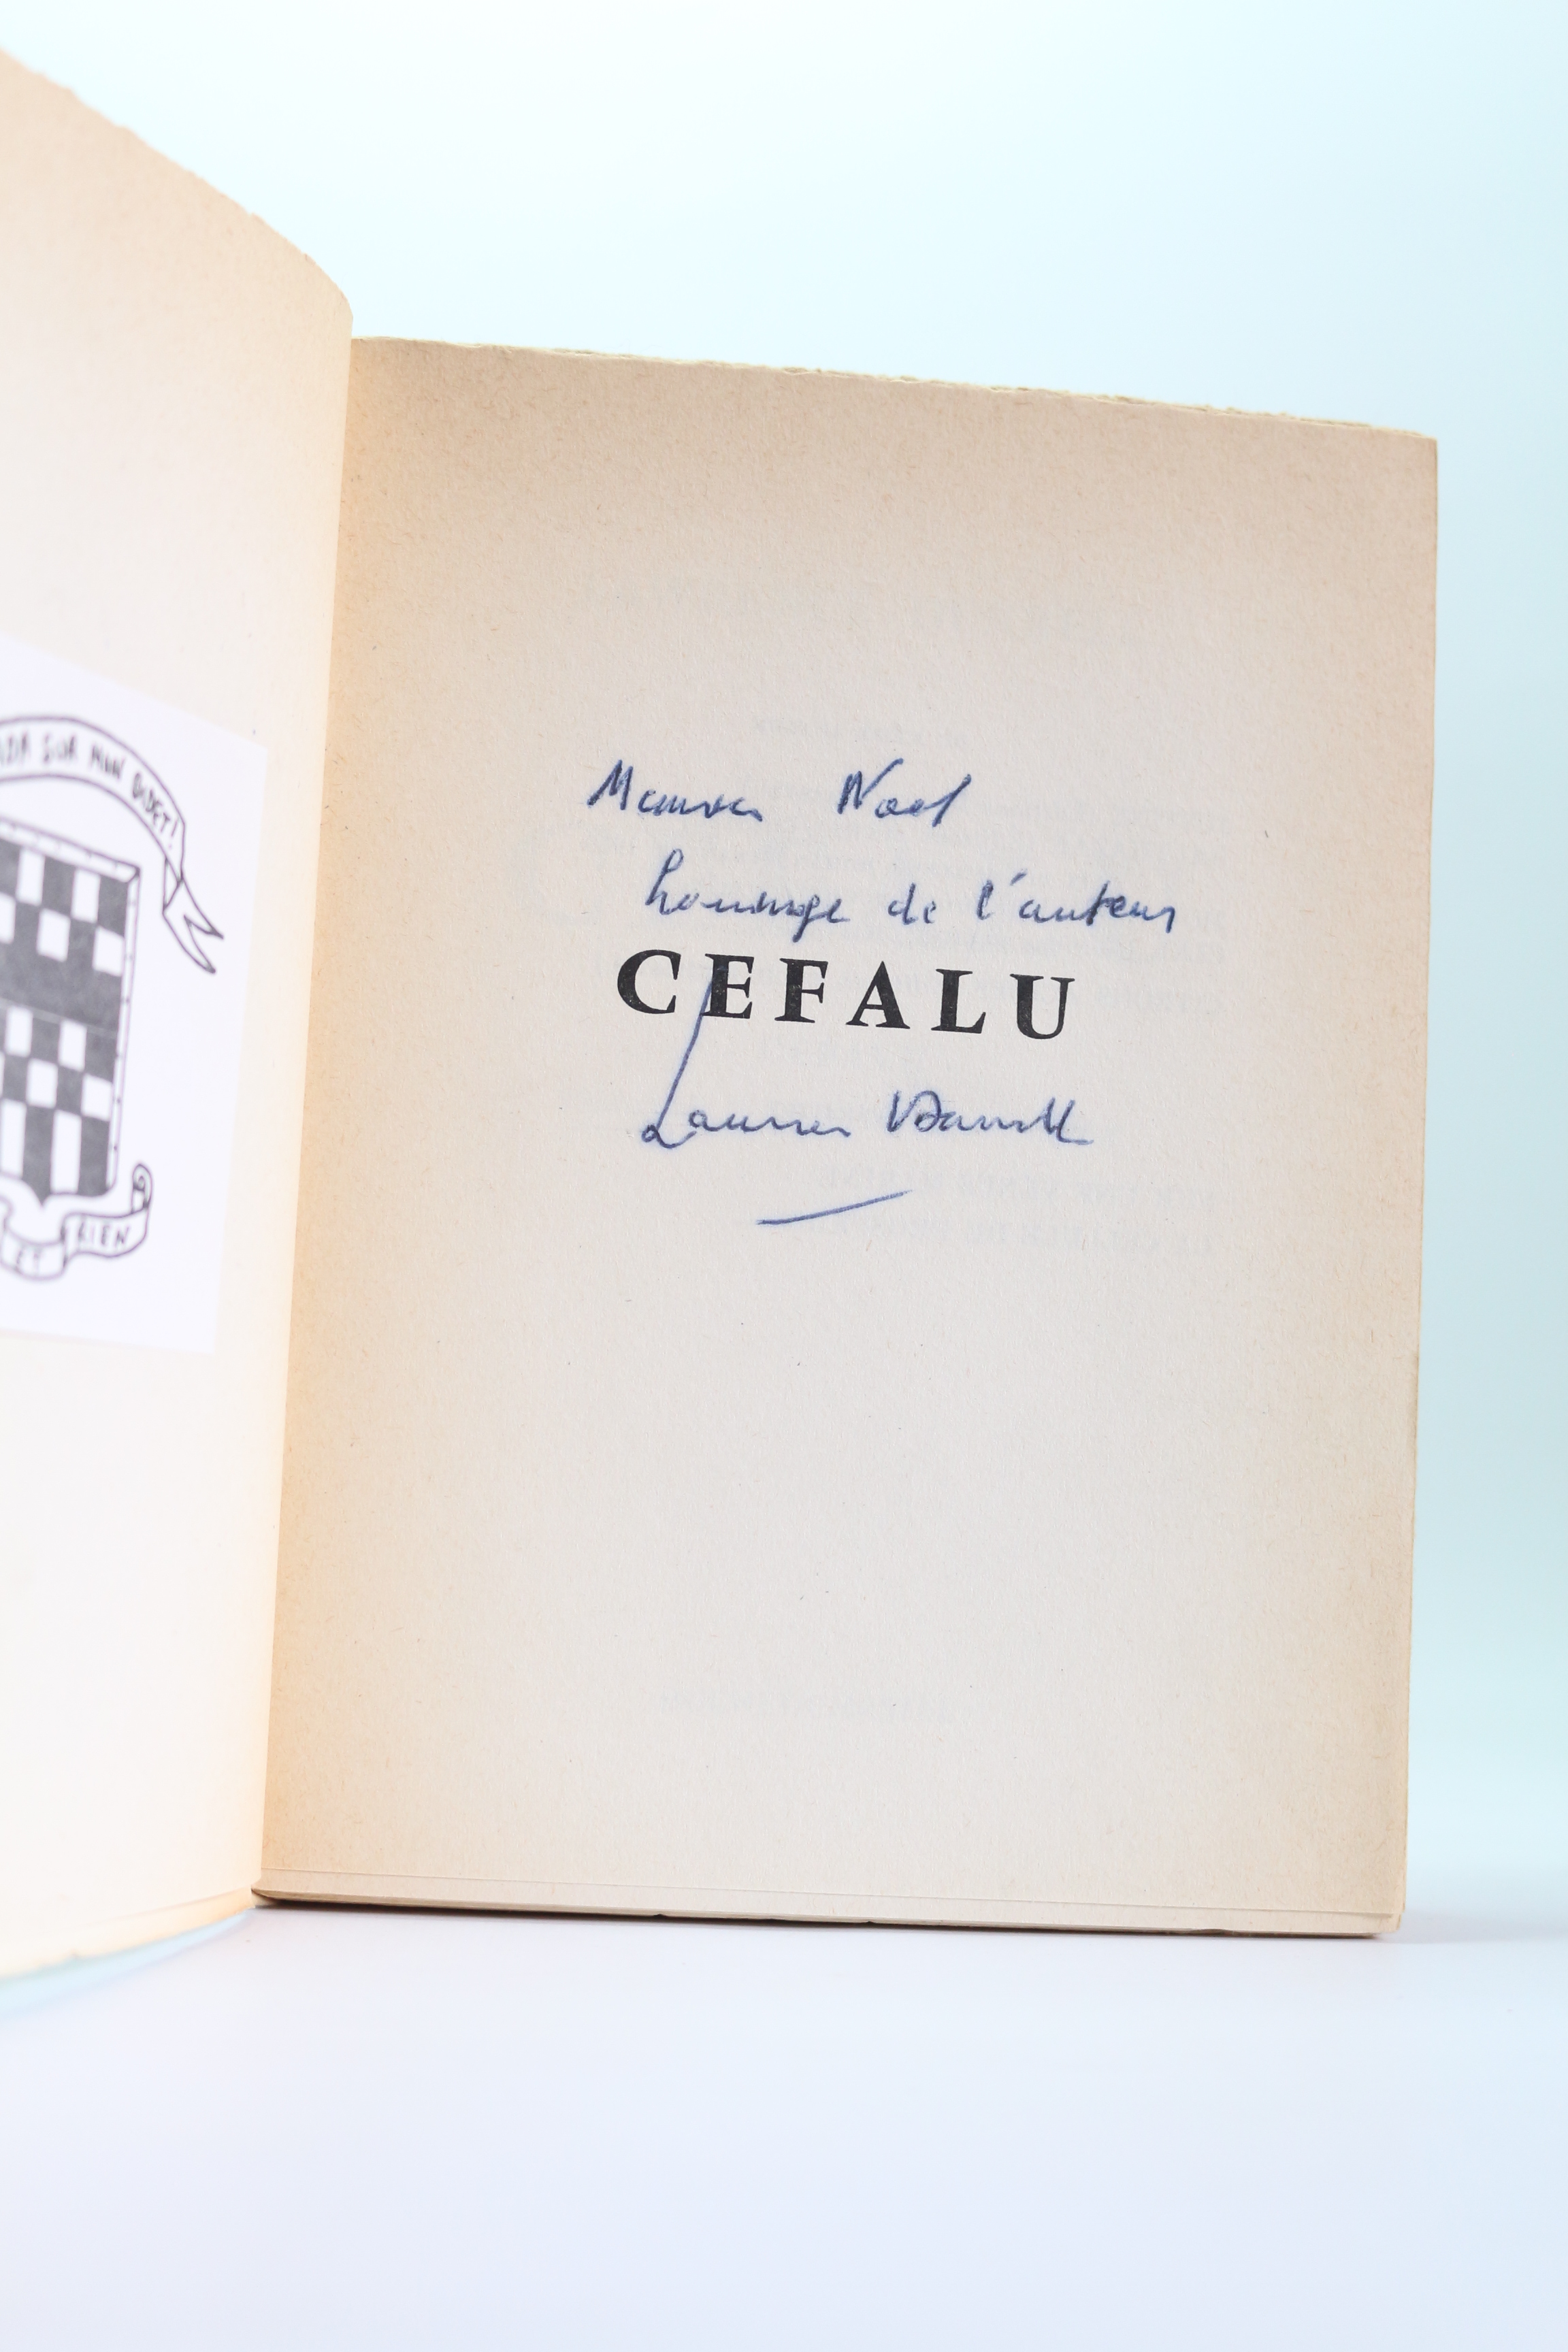 SUR MON BIDET!
ET RIEN
Maurice Noel
hommage de l'auteur
CEFALU
Lawrence Durrell